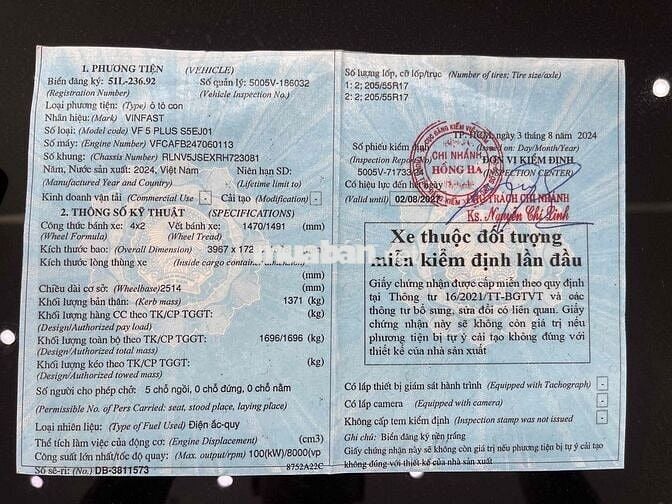 1. PHƯƠNG TIỆN (VEHICLE)
Biển đăng ký: 51L-236.92 Số quản lý: 5005V-186032
(Registration Number) (Vehicle Inspection No.)
Loại phương tiện: (Type) ô tô con
Nhãn hiệu: (Mark) VINFAST
Số loại: (Model code) VF 5 PLUS S5EJ01
Số máy: (Engine Number) VFCAFB247060113
Số khung: (Chassis Number) RLNV5JSEXRH723081
Năm, Nước sản xuất: 2024, Việt Nam Niên hạn SD:
(Manufactured Year and Country) (Lifetime limit to)
Kinh doanh vận tải (Commercial Use) - Cải tạo (Modification) -
2. THÔNG SỐ KỸ THUẬT (SPECIFICATIONS)
Công thức bánh xe: 4x2 Vết bánh xe: 1470/1491 (mm)
(Wheel Formula) (Wheel Tread)
Kích thước bao: (Overall Dimension) 3967 x 172 (mm)
Kích thước lòng thùng xe (Inside cargo container dimension)
(mm)
Chiều dài cơ sở: (Wheelbase) 2514 (mm)
Khối lượng bản thân: (Kerb mass) 1371 (kg)
Khối lượng hàng CC theo TK/CP TGGT: (kg)
(Design/Authorized pay load)
Khối lượng toàn bộ theo TK/CP TGGT: 1696/1696 (kg)
(Design/Authorized total mass)
Khối lượng kéo theo TK/CP TGGT: (kg)
(Design/Authorized towed mass)
Số người cho phép chở: 5 chỗ ngồi, 0 chỗ đứng, 0 chỗ nằm
(Permissible No. of Pers Carried: seat, stood place, laying place)
Loại nhiên liệu: (Type of Fuel Used) Điện ắc-quy
Thể tích làm việc của động cơ: (Engine Displacement) (cm3)
Công suất lớn nhất/tốc độ quay: (Max. output/rpm) 100(kW)/8000(vp
Số sê-ri: (No.) DB-3811573 8752A22C
Số lượng lốp, cỡ lốp/trục (Number of tires; Tire size/axle)
1: 2; 205/55R17
2: 2; 205/55R17
TP. HCM, ngày 3 tháng 8 năm 2024
Số phiếu kiểm (Issued on: Day/Month/Year)
(Inspection Report No) ĐƠN VỊ KIỂM ĐỊNH
5005V-71733 (INSPECTION CENTER)
Có hiệu lực đến hết ngày
(Valid until) 02/08/202 PHỤ TRÁCH CHI NHÁNH
Ks. Nguyễn Chí Linh
CHI NHÁNH
HỒNG HÀ
muaban
Xe thuộc đối tượng
miễn kiểm định lần đầu
Giấy chứng nhận được cấp miễn theo quy định
tại Thông tư 16/2021/TT-BGTVT và các
thông tư bổ sung, sửa đổi có liên quan. Giấy
chứng nhận này sẽ không còn giá trị nếu
phương tiện bị tự ý cải tạo không đúng với
thiết kế của nhà sản xuất
Có lắp thiết bị giám sát hành trình (Equipped with Tachograph) -
Có lắp camera (Equipped with camera) -
Không cấp tem kiểm định (Inspection stamp was not issued -
Ghi chú: Biển đăng ký nền trắng
Giấy chứng nhận này sẽ không còn giá trị nếu phương tiện bị tự ý cải tạo
không đúng với thiết kế của nhà sản xuất